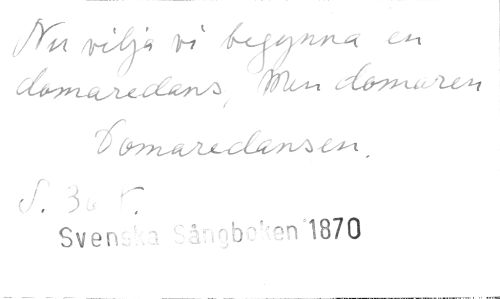 Nu vilja vi begynna en
domaredans, Men domaren
Domaredansen.
S. 30
Svenska Sångboken 1870